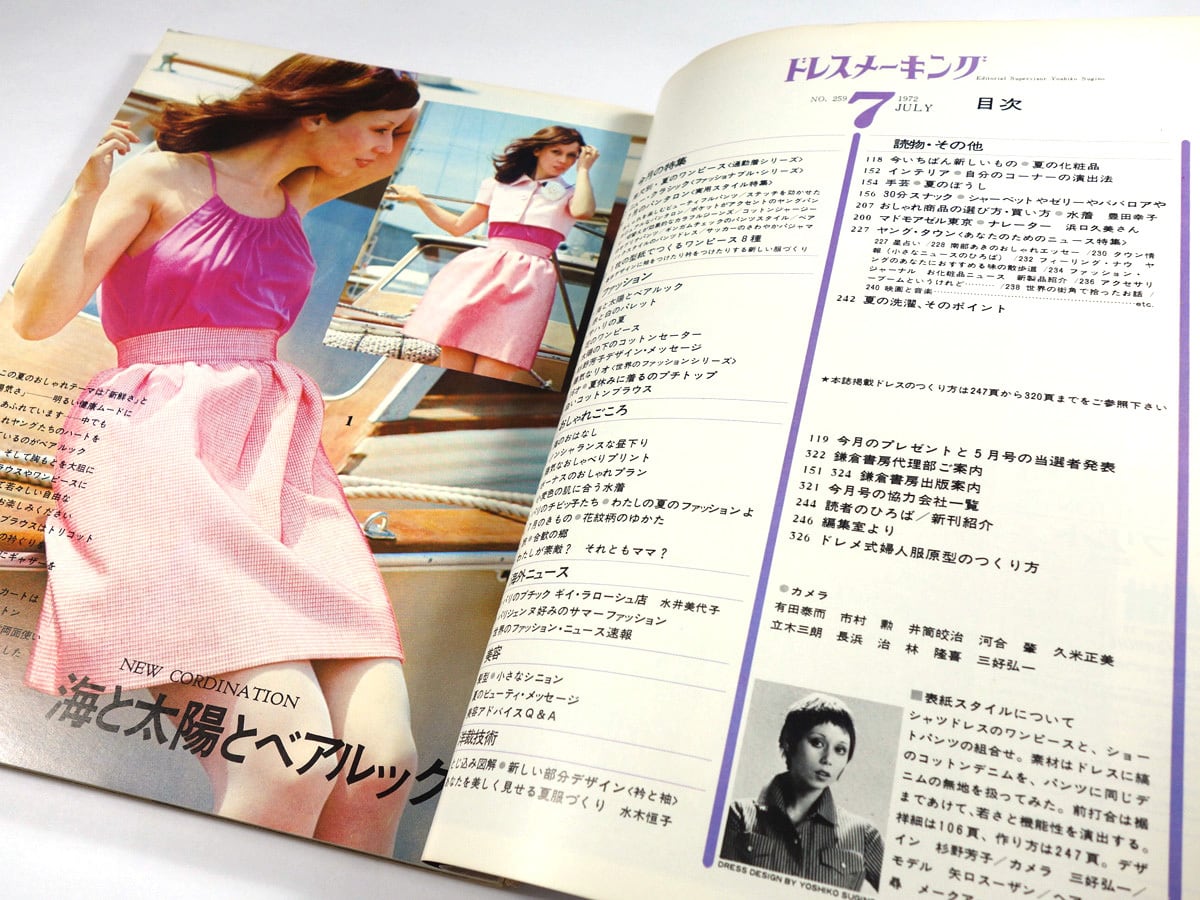 この夏のおしゃれテーマは「新鮮さ」と
明るい健康ムードに
あふれています――中でも
れヤングたちのハートを
いるのがベアルック
そして胸もとを大胆に
ラウスやワンピースに
若々しい自由な
お楽しみください
ブラウスはトリコット
の衿ぐり
にギャザーを
カートは
トン
両面使い
した
1
NEW CORDINATION
海と太陽とベアルック
ドレスメーキング
Editorial Supervisor Yoshiko Sugino
NO. 259 7 1972 JULY 目次
今月の特集
大別・夏のワンピース〈通勤着シリーズ〉
クラシック〈ファッショナブル・シリーズ〉
夏のパンタロン〈実用スタイル特集〉
一枚の型紙でつくるワンピース8種
ファッション
海と太陽とベアルック
赤と白のパレット
の夏
のワンピース
太陽の下のコットンセーター
杉野芳子デザイン・メッセージ
リオ〈世界のファッションシリーズ〉
夏休みに着るのプチトップ
コットンブラウス
おしゃれごころ
のおはなし
ノンシャランスな昼下り
陽気なおしゃべりプリント
ボーナスのおしゃれプラン
小麦色の肌に合う水着
パリのチビッ子たち●わたしの夏のファッションよ
7月のきもの●花紋柄のゆかた
旅●合歓の郷
わたしが素敵？ それともママ？
海外ニュース
パリのブチック ギイ・ラローシュ店 水井美代子
パリジェンヌ好みのサマーファッション
世界のファッション・ニュース速報
美容
髪型●小さなシニョン
夏のビューティ・メッセージ
美容アドバイスQ&A
洋裁技術
とじ込み図解●新しい部分デザイン〈衿と袖〉
あなたを美しく見せる夏服づくり 水木恒子
読物・その他
118 今いちばん新しいもの●夏の化粧品
152 インテリア●自分のコーナーの演出法
154 手芸●夏のぼうし
156 30分スナック●シャーベットやゼリーやババロアや
207 おしゃれ商品の選び方・買い方●水着 豊田幸子
200 マドモアゼル東京●ナレーター 浜口久美さん
227 ヤング・タウン〈あなたのためのニュース特集〉
227 星占い／228 南部あきのおしゃれエッセー／230 タウン情
報（小さなニュースのひろば）／232 フィーリング・ナウ ヤ
ングのあなたにおすすめる味の散歩道／234 ファッション・
ジャーナル お化粧品ニュース 新製品紹介／236 アクセサリ
ーブームというけれど………／238 世界の街角で拾ったお話／
240 映画と音楽………etc.
242 夏の洗濯、そのポイント
★本誌掲載ドレスのつくり方は247頁から320頁までをご参照下さい
119 今月のプレゼントと5月号の当選者発表
322 鎌倉書房代理部ご案内
151 324 鎌倉書房出版案内
321 今月号の協力会社一覧
244 読者のひろば／新刊紹介
246 編集室より
326 ドレメ式婦人服原型のつくり方
●カメラ
有田泰而 市村 勲 井筒皎治 河合 肇 久米正美
立木三朗 長浜 治 林 隆喜 三好弘一
■表紙スタイルについて
シャツドレスのワンピースと、ショー
トパンツの組合せ。素材はドレスに縞
のコットンデニムを、パンツに同じデ
ニムの無地を扱ってみた。前打合は裾
まであけて、若さと機能性を演出する。
祥細は106頁、作り方は247頁。デザ
イン 杉野芳子／カメラ 三好弘一／
モデル 矢口スーザン／ヘア
メークア
DRESS DESIGN BY YOSHIKO SUGINO